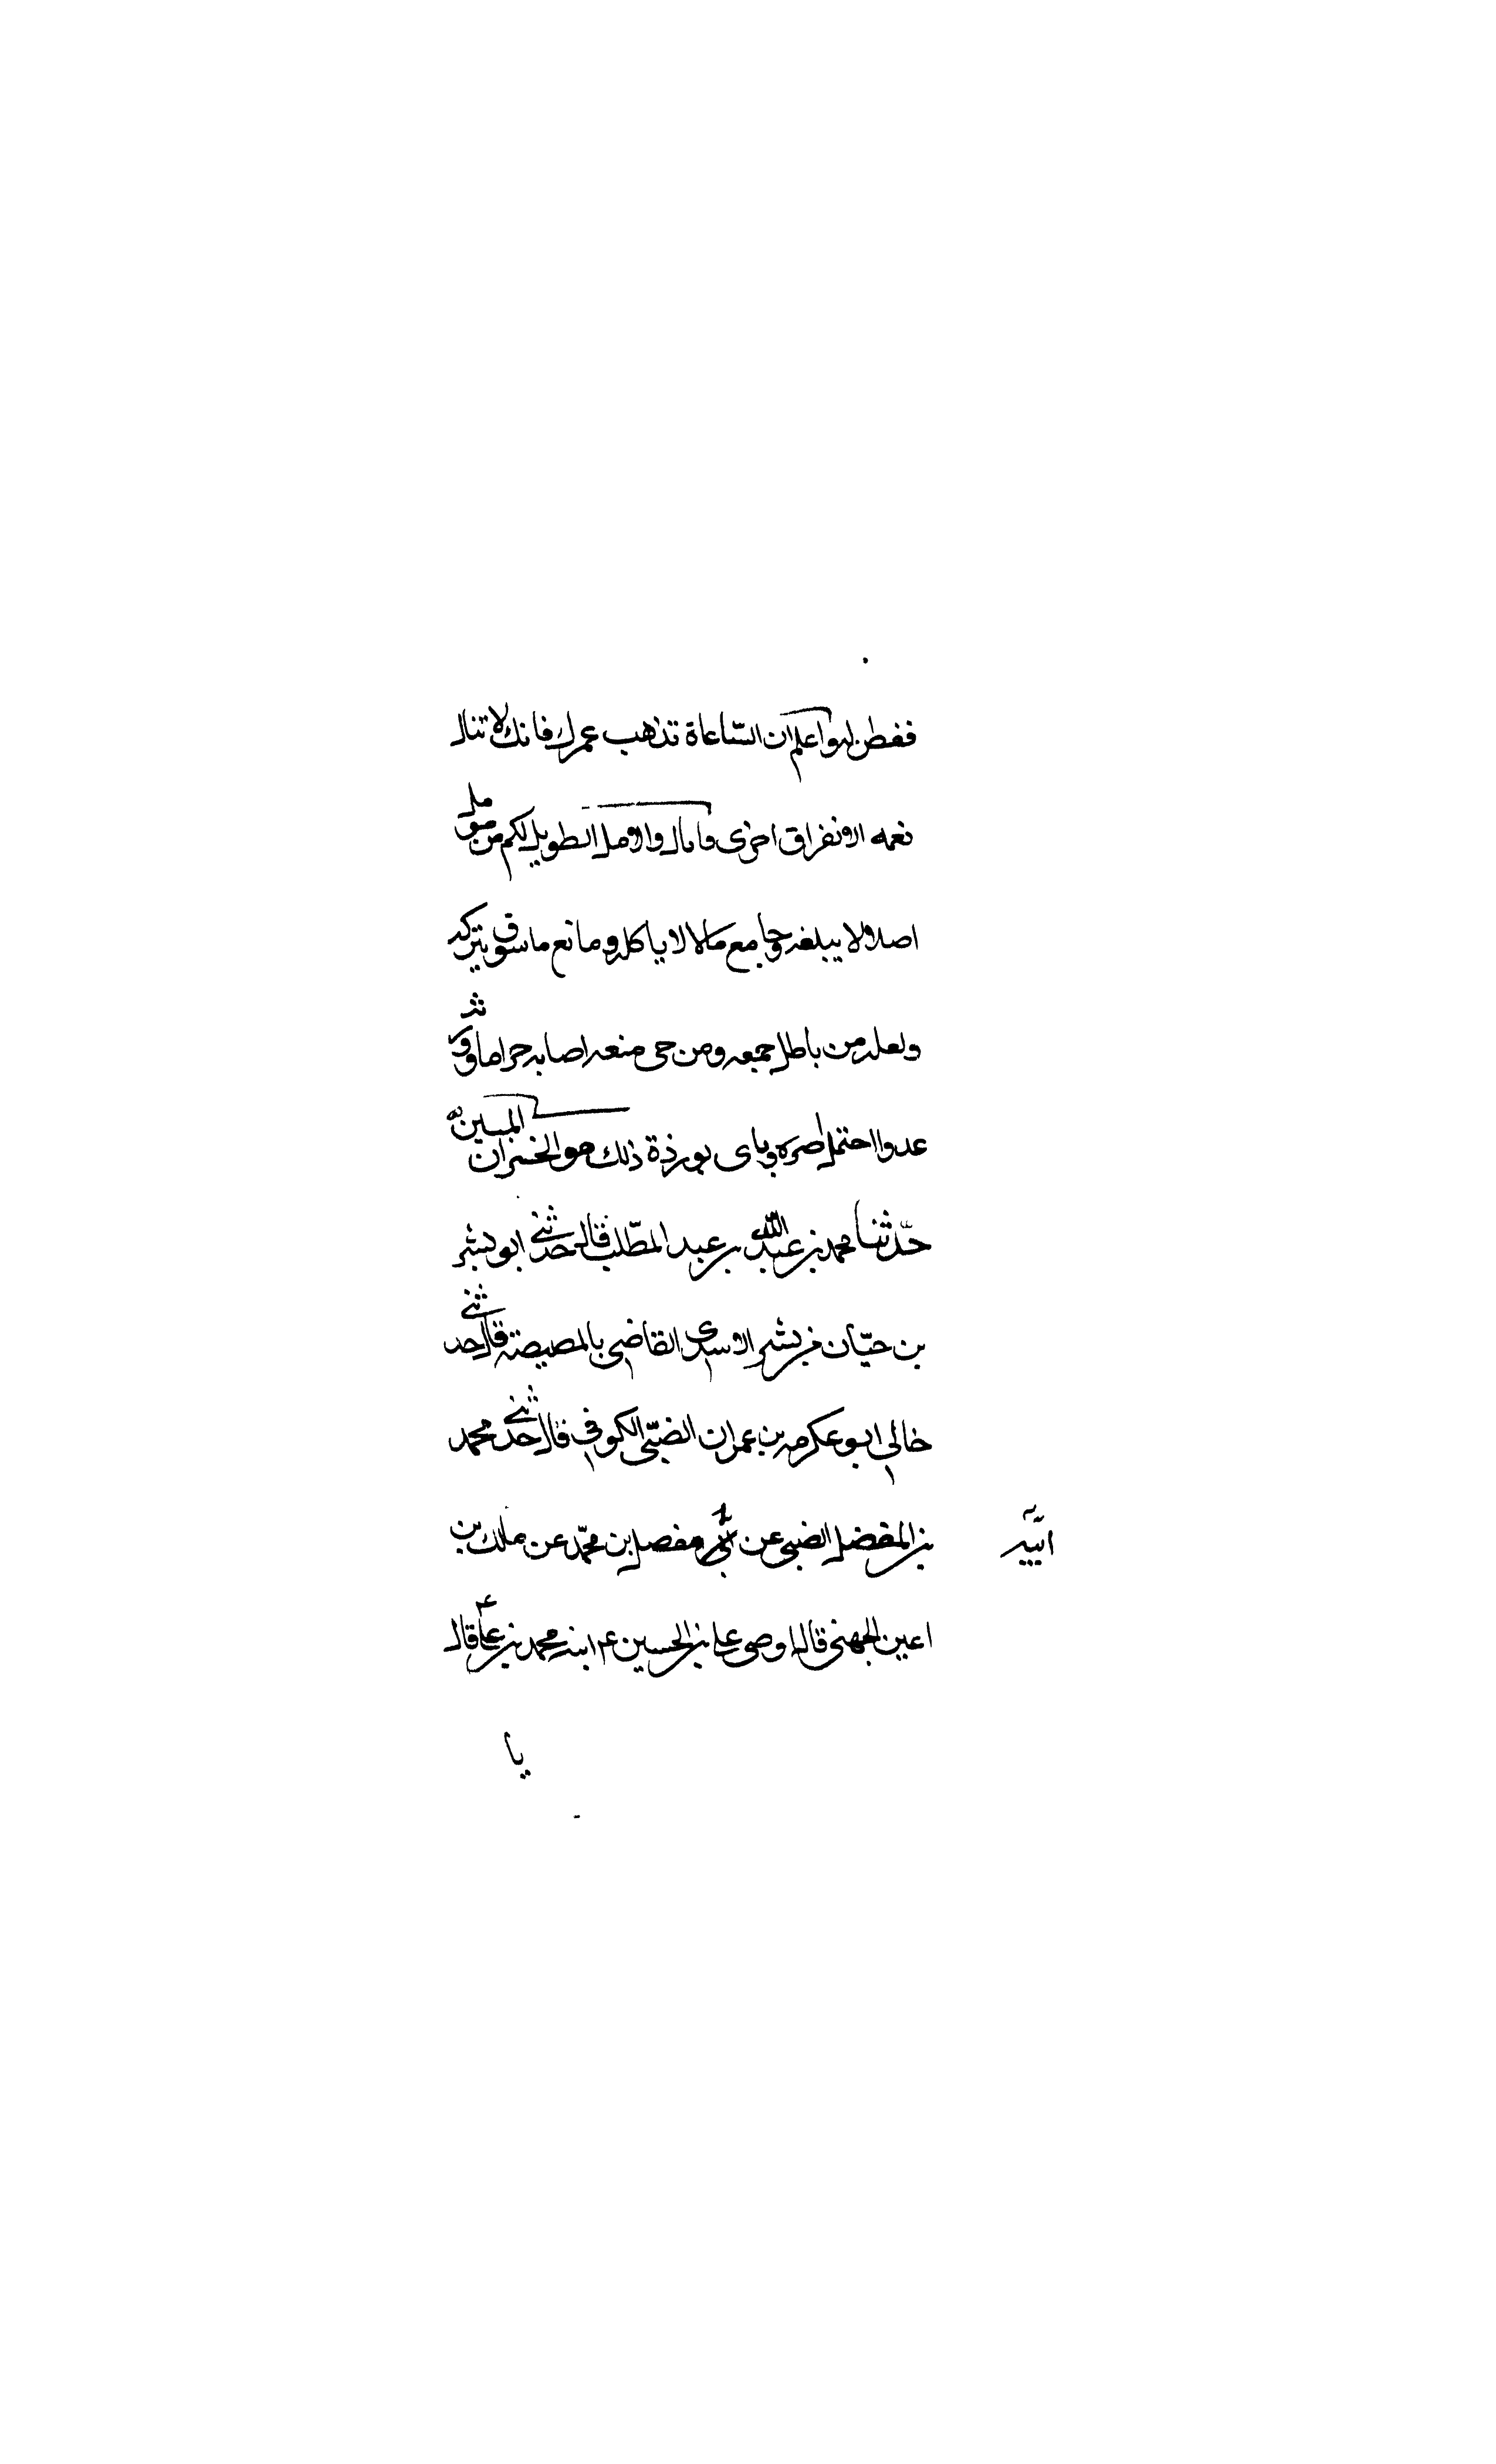 واعلم ان الساعاة تذهب عمرك فانك لا تنال
نعمه الا بفراق اخرى فاياك والامل الطويل لكم من مؤمل
املا لا يبلغه وجامع مالا لا ياكله ومانع ما سوف يتركه
ولعله من باطل جمعه ومن حق منعه اصابه حراما وورثه
عدوا احتمل اصره وباى بوزره ذلك هو الخسران المبين
حدّثنا محمد بن عبد الله بن عبد المطّلب قال حدثني ابو بشر
بن حيّان بن بشر الاسدى القاضي بالمصيصة قال حدثني
خالي ابو عكرمه بن عمران الضبّي الكوفي قال حدثني محمد
بن المفضل الضبي عن ابيه مفضل بن محمّد عن ملك بن
ابيه
اعين الجهني قال اوصى على بن الحسين ع ابنه محمد بن على ع قال
يا